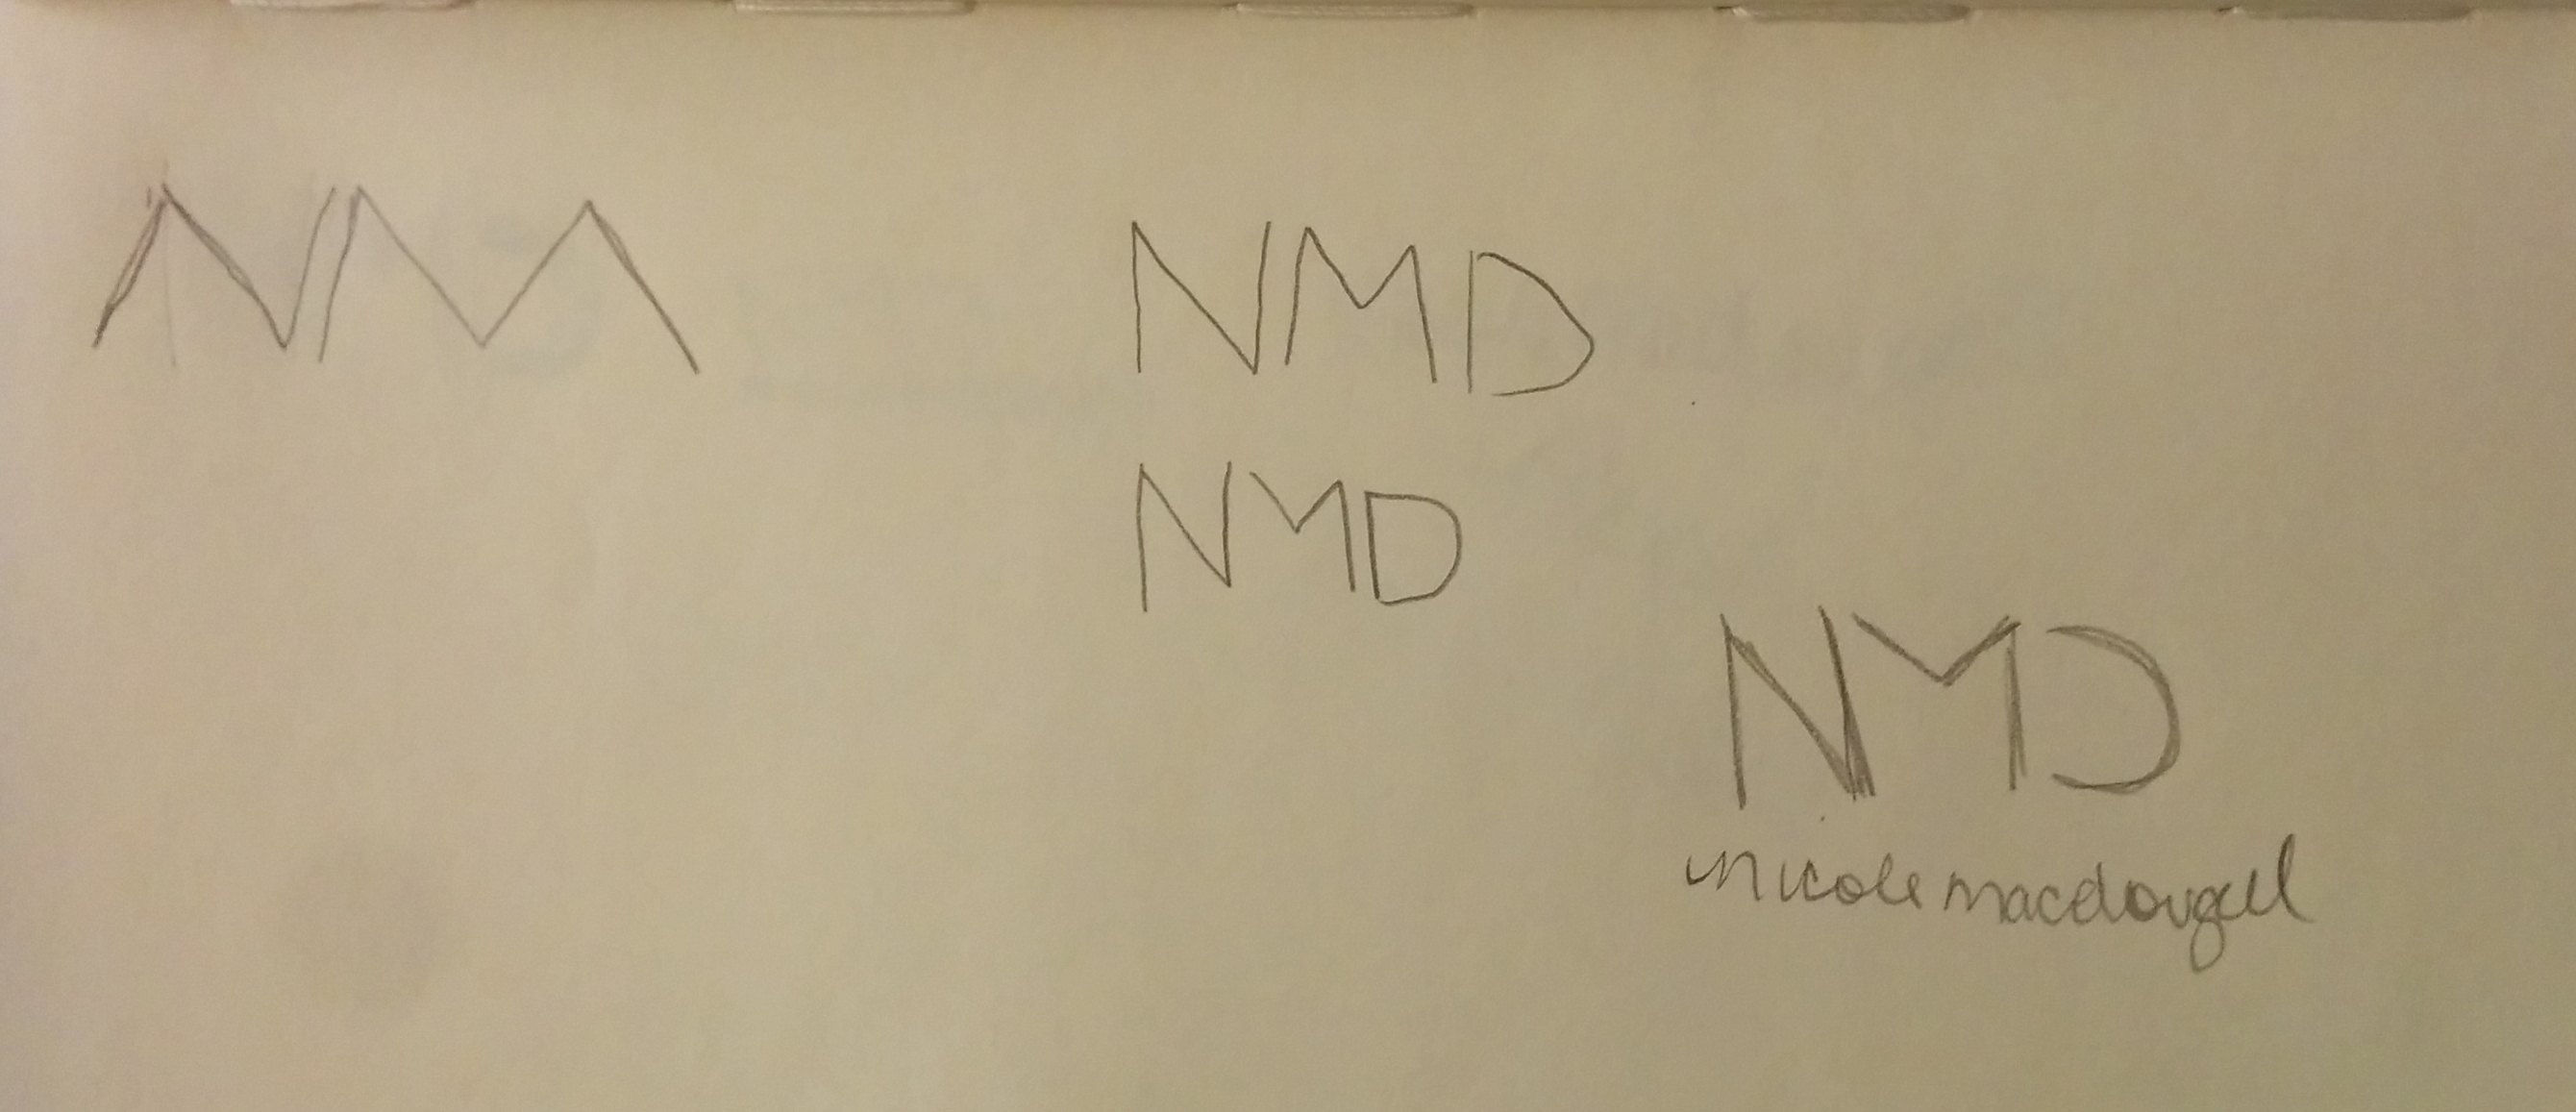 NM
NMD
NMD
NMD
nicole macdougall